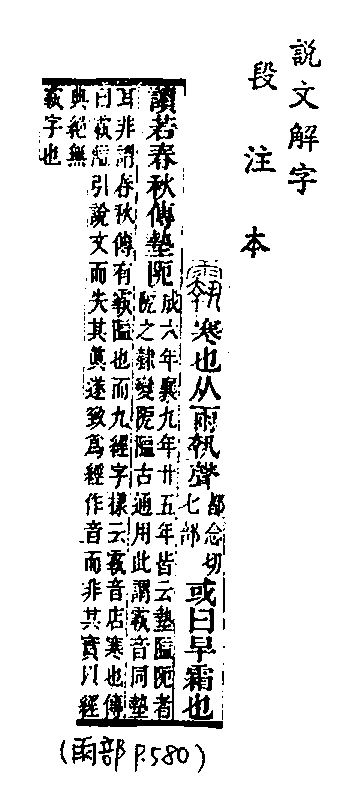 說文解字
段注本
䨴寒也从雨執聲都念切七部或曰早霜也
讀若春秋傳墊阸成六年襄九年廿五年皆云墊隘阸者
阸之隷變阸隘古通用此謂䨴音同墊
耳非謂春秋傳有䨴隘也而九經字樣云䨴音店寒也傳
曰䨴隘引說文而失其眞遂致爲經作音而非其實以經
典絕無
䨴字也
(雨部 P.580)